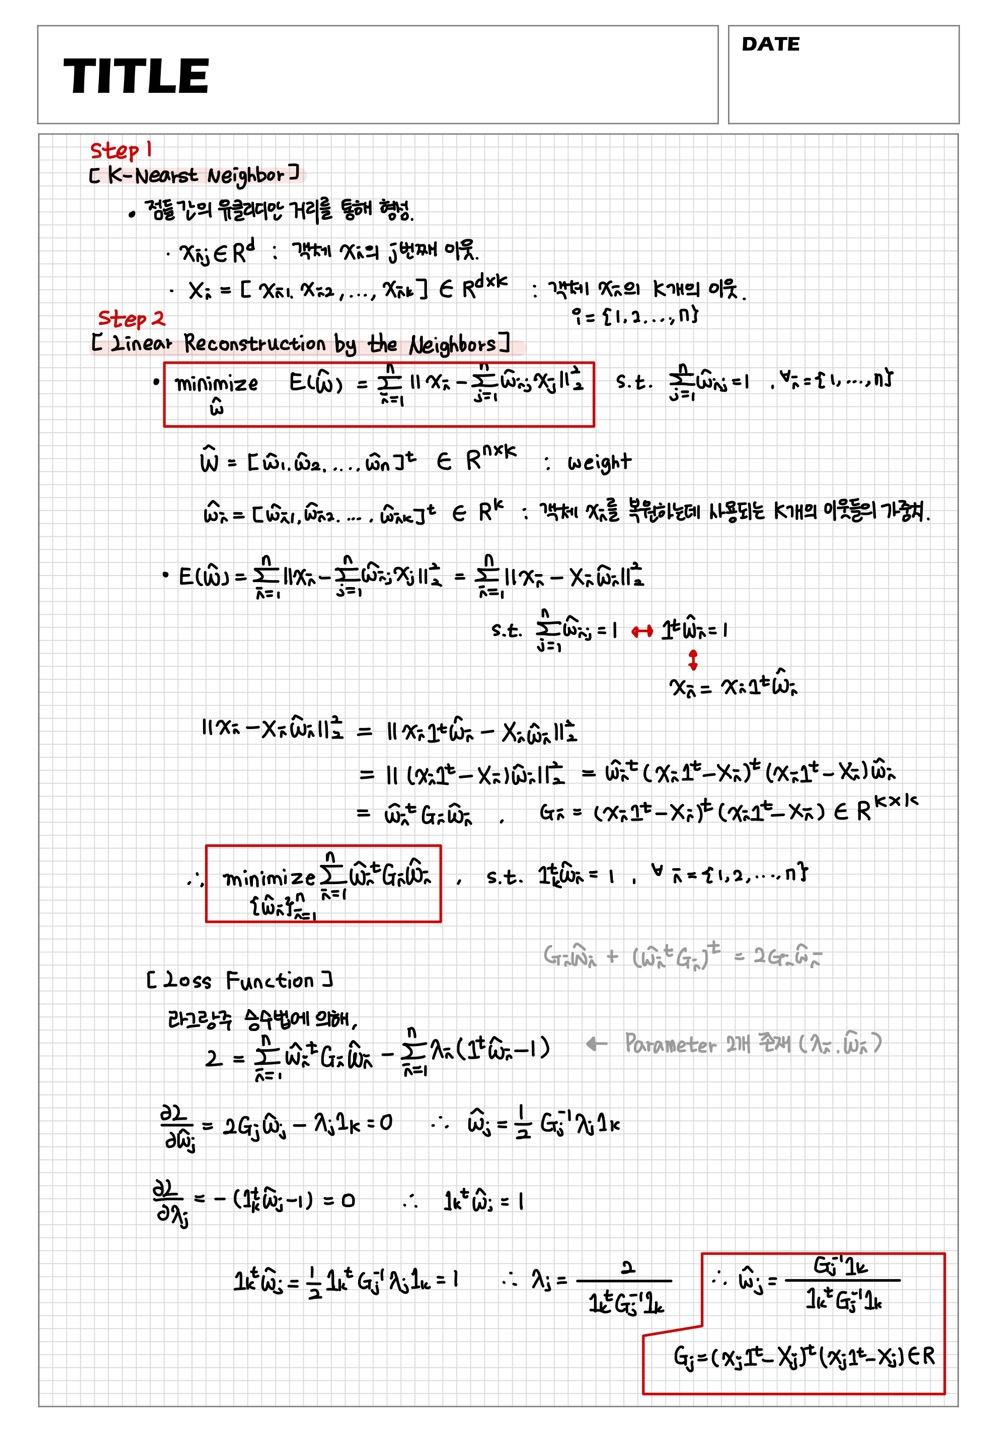 TITLE
DATE
Step 1
[ K-Nearst Neighbor ]
• 점들 간의 유클리디안 거리를 통해 형성.
· x_{ij} ∈ R^d : 객체 x_i의 j번째 이웃.
· X_i = [ x_{i1}, x_{i2}, ..., x_{ik} ] ∈ R^{d×k} : 객체 x_i의 K개의 이웃.
i = {1, 2, ..., n}
Step 2
[ Linear Reconstruction by the Neighbors ]
• minimize_{ŵ} E(ŵ) = Σ_{i=1}^n || x_i - Σ_{j=1}^n ŵ_{ij} x_j ||_2^2 s.t. Σ_{j=1}^n ŵ_{ij} = 1 , ∀i = {1, ..., n}
Ŵ = [ ŵ_1, ŵ_2, ..., ŵ_n ]^t ∈ R^{n×k} : weight
ŵ_i = [ ŵ_{i1}, ŵ_{i2}, ..., ŵ_{ik} ]^t ∈ R^k : 객체 x_i를 복원하는데 사용되는 K개의 이웃들의 가중치.
• E(ŵ) = Σ_{i=1}^n || x_i - Σ_{j=1}^n ŵ_{ij} x_j ||_2^2 = Σ_{i=1}^n || x_i - X_i ŵ_i ||_2^2
s.t. Σ_{j=1}^n ŵ_{ij} = 1 ↔ 1^t ŵ_i = 1
↕
x_i = x_i 1^t ŵ_i
|| x_i - X_i ŵ_i ||_2^2 = || x_i 1^t ŵ_i - X_i ŵ_i ||_2^2
= || (x_i 1^t - X_i) ŵ_i ||_2^2 = ŵ_i^t (x_i 1^t - X_i)^t (x_i 1^t - X_i) ŵ_i
= ŵ_i^t G_i ŵ_i , G_i = (x_i 1^t - X_i)^t (x_i 1^t - X_i) ∈ R^{k×k}
∴ minimize_{{ŵ_i}_{i=1}^n} Σ_{i=1}^n ŵ_i^t G_i ŵ_i , s.t. 1_k^t ŵ_i = 1 , ∀ i = {1, 2, ..., n}
G_i ŵ_i + (ŵ_i^t G_i)^t = 2 G_i ŵ_i
[ Loss Function ]
라그랑주 승수법에 의해,
L = Σ_{i=1}^n ŵ_i^t G_i ŵ_i - Σ_{i=1}^n λ_i (1^t ŵ_i - 1) ← Parameter 2개 존재 (λ_i, ŵ_i)
∂L/∂ŵ_j = 2 G_j ŵ_j - λ_j 1_k = 0 ∴ ŵ_j = 1/2 G_j^{-1} λ_j 1_k
∂L/∂λ_j = - (1_k^t ŵ_j - 1) = 0 ∴ 1_k^t ŵ_j = 1
1_k^t ŵ_j = 1/2 1_k^t G_j^{-1} λ_j 1_k = 1 ∴ λ_j = 2 / (1_k^t G_j^{-1} 1_k) ∴ ŵ_j = G_j^{-1} 1_k / (1_k^t G_j^{-1} 1_k)
G_j = (x_j 1^t - X_j)^t (x_j 1^t - X_j) ∈ R